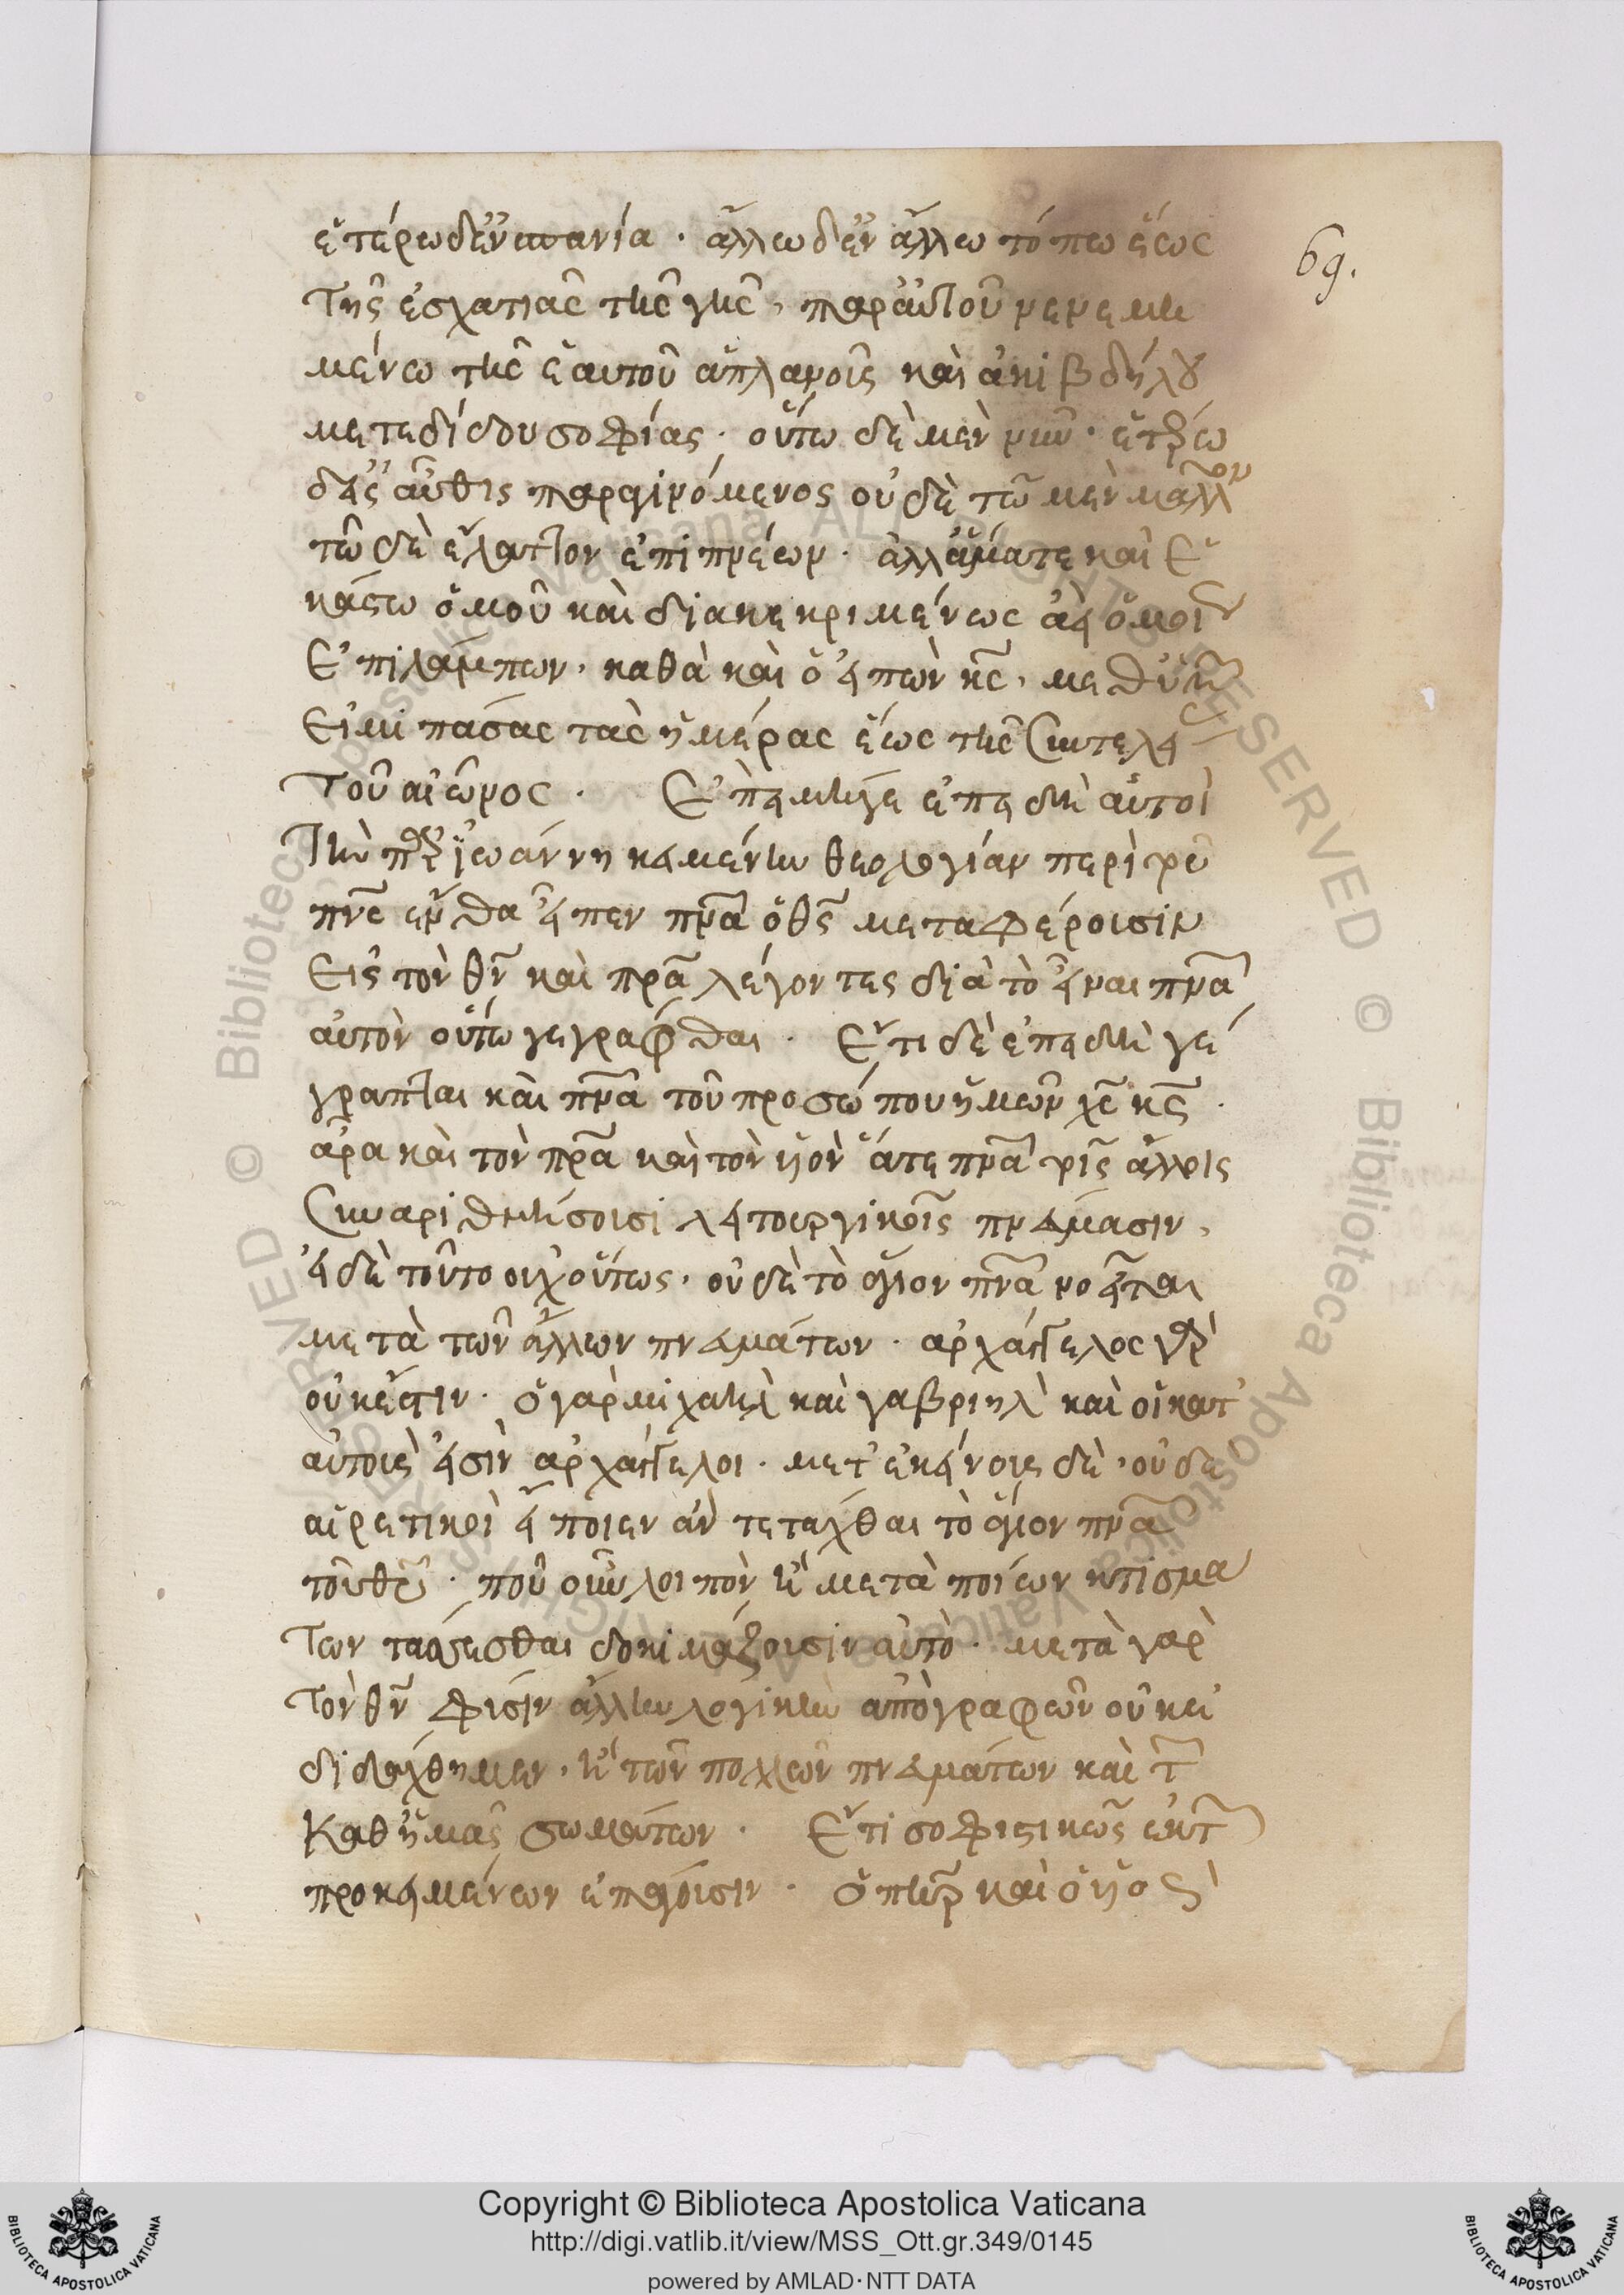 ἑτέρω δ' ἐν σπανία · ἄλλω δ' ἐν ἄλλω τόπω ἕως
τῆς ἐσχατιᾶς τῆς γῆς, παρ' αὐτοῦ νενεμη
μένω τῆς ἑαυτοῦ ἀπλανοῦς καὶ ἀκιβδήλου
μεταδίδου σοφίας · οὕτω δὲ μὲν νῦν · ἑτέρω
δ' εἰς αὖθις παραγινόμενος οὐδὲ τῶ μὲν μᾶλλον
τῶ δὲ ἔλαττον ἐπιπνέων · ἀλλ' ἅμα τε καὶ ἑ
κάστω ὁμοῦ καὶ διακεκριμένως ἀεὶ ὁμοῦ
ἐπιλάμπων · καθὰ καὶ ὁ εἰπὼν κς, μεθ' ὑμῶν
εἰμὶ πάσας τὰς ἡμέρας ἕως τῆς συντελεί
τοῦ αἰῶνος · Ἐπεὶ μή γε ἐπειδὴ αὐτοὶ
τὴν πρ Ἰωάννη κειμένην θεολογίαν περὶ τοῦ
πνς ἔνθα εἶπεν πνα ὁ θς μεταφέρουσιν
εἰς τὸν θν καὶ πρα λέγοντες διὰ τὸ εἶναι πνα
αὐτὸν οὕτω γεγράφθαι · Ἔτι δὲ ἐπειδὴ γέ
γραπται καὶ πνα τοῦ προσώπου ἡμῶν χς κς ·
ἄρα καὶ τὸν πρα καὶ τὸν υἱὸν ἅτε πνα τοῖς ἄλλοις
συναριθμήσουσι λειτουργικοῖς πνεύμασιν,
εἰ δὲ τοῦτο οὐχ οὕτως · οὐδὲ τὸ ἅγιον πνα νοεῖται
μετὰ τῶν ἄλλων πνευμάτων · ἀρχάγγελος γὰρ
οὐκ ἔστιν · ὁ γὰρ μιχαὴλ καὶ γαβριὴλ καὶ οἱ κατ'
αὐτοὺς εἰσὶν ἀρχάγγελοι · μετ' ἐκείνους δὲ · οὐδὲ
αἱρετικοὶ εἴποιεν ἂν τετάχθαι τὸ ἅγιον πνα
τοῦ θυ · ποῦ οὖν λοιπὸν ἢ μετὰ ποίων κτισμά
των τάσσεσθαι δοκιμάζουσιν αὐτὸ · μετὰ γὰρ
τὸν θν φύσιν ἄλλην λογικὴν ἀπὸ γραφῶν οὐκ ἐ
διδάχθημεν · ἢ τῶν πολλῶν πνευμάτων καὶ τῶν
καθ' ἡμᾶς σωμάτων · Ἔτι σοφιστικῶς ἐκ τῶν
προκειμένων ἐπάγουσιν · ὁ πηρ καὶ ὁ υἱὸς
69.
Copyright © Biblioteca Apostolica Vaticana
http://digi.vatlib.it/view/MSS_Ott.gr.349/0145
powered by AMLAD·NTT DATA
BIBLIOTECA APOSTOLICA VATICANA
BIBLIOTECA APOSTOLICA VATICANA